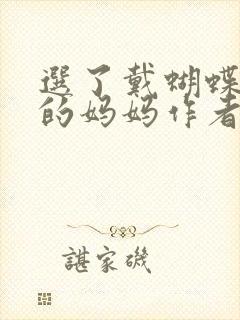 選了戴蝴蝶
的妈妈作者
諶家磯